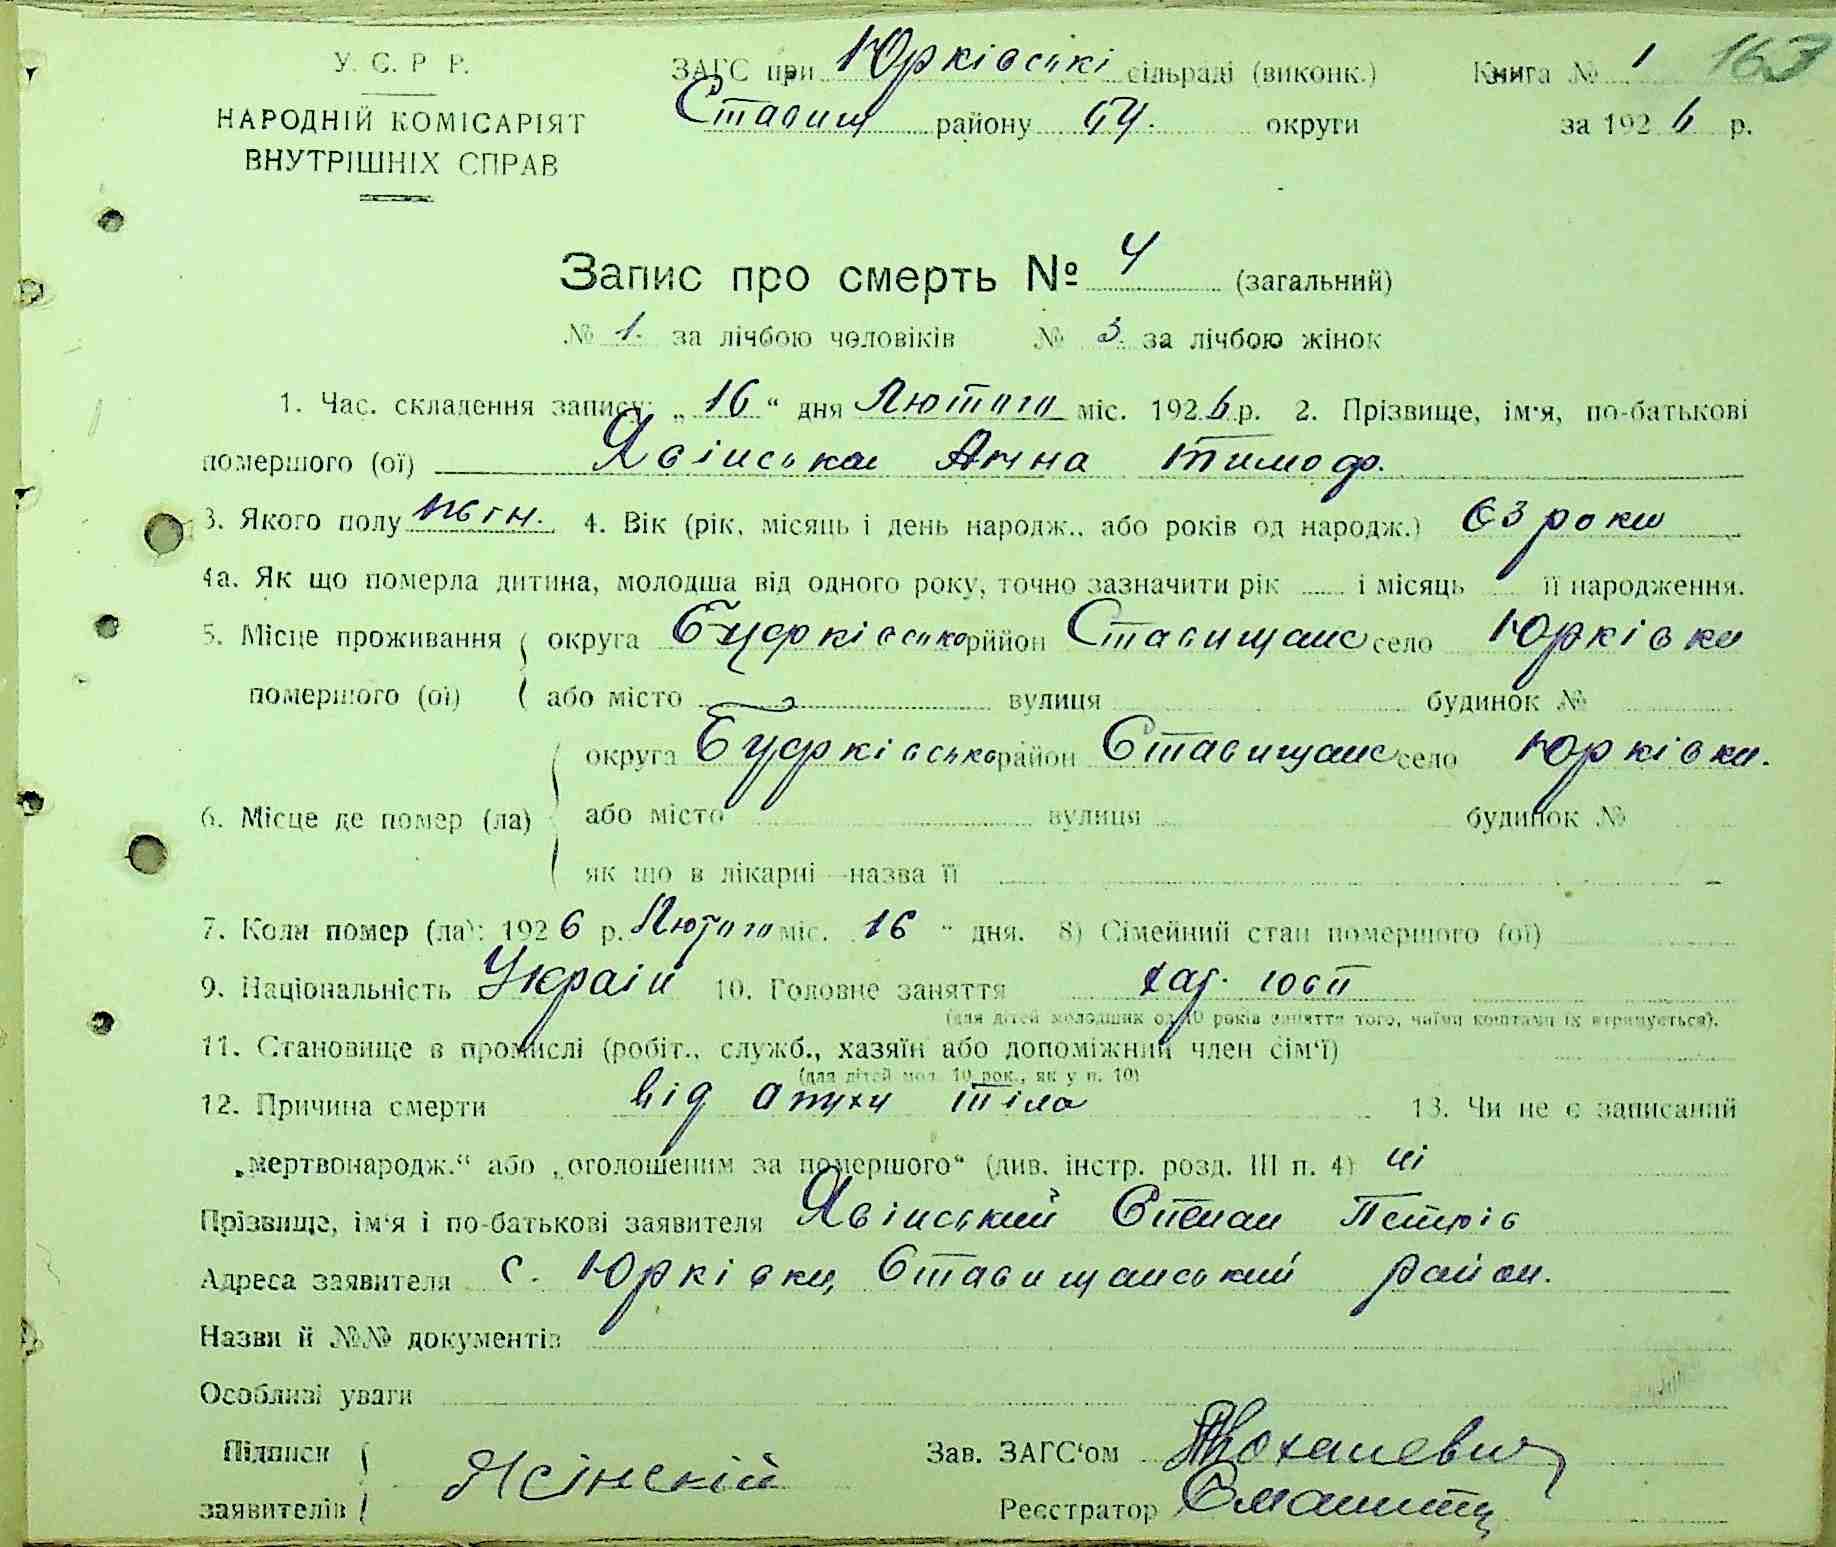 У. С. Р. Р.
НАРОДНІЙ КОМІСАРІЯТ
ВНУТРІШНІХ СПРАВ
ЗАГС при Юрківські сільраді (виконк.) Книга № 1 163
Ставищ району БЦ. округи за 1926 р.
Запис про смерть № 4 (загальний)
№ 1. за лічбою чоловіків № 3. за лічбою жінок
1. Час. складення запису: „16“ дня Лютого міс. 1926 р. 2. Прізвище, ім‘я, по-батькові
помершого (ої) Явінська Анна Тимоф.
3. Якого полу жін. 4. Вік (рік, місяць і день народж., або років од народж.) 63 роки
4а. Як що померла дитина, молодша від одного року, точно зазначити рік і місяць її народження.
5. Місце проживання округа район Ставищанс село Юрківки
помершого (ої) або місто вулиця будинок №
округа район Ставищанс село Юрківки.
6. Місце де помер (ла) або місто вулиця будинок №
як що в лікарні—назва її
7. Коли помер (ла): 1926 р. Лютого міс. 16 “ дня. 8) Сімейний стан помершого (ої)
9. Національність Україн 10. Головне заняття госп
(для дітей молодших од 10 років заняття того, чиїми коштами їх втримується).
11. Становище в промислі (робіт., служб., хазяїн або допоміжний член сім‘ї)
(для дітей мол. 10 рок., як у п. 10)
12. Причина смерти від опухи тіла 13. Чи не є записаний
„мертвонародж.“ або „оголошеним за помершого“ (див. інстр. розд. III п. 4) ні
Прізвище, ім‘я і по-батькові заявителя Явінський Степан Петрів
Адреса заявителя с. Юрківки, Ставищанський район.
Назви й №№ документів
Особливі уваги
Підписи Зав. ЗАГС‘ом
заявителів Ясінскій Реєстратор